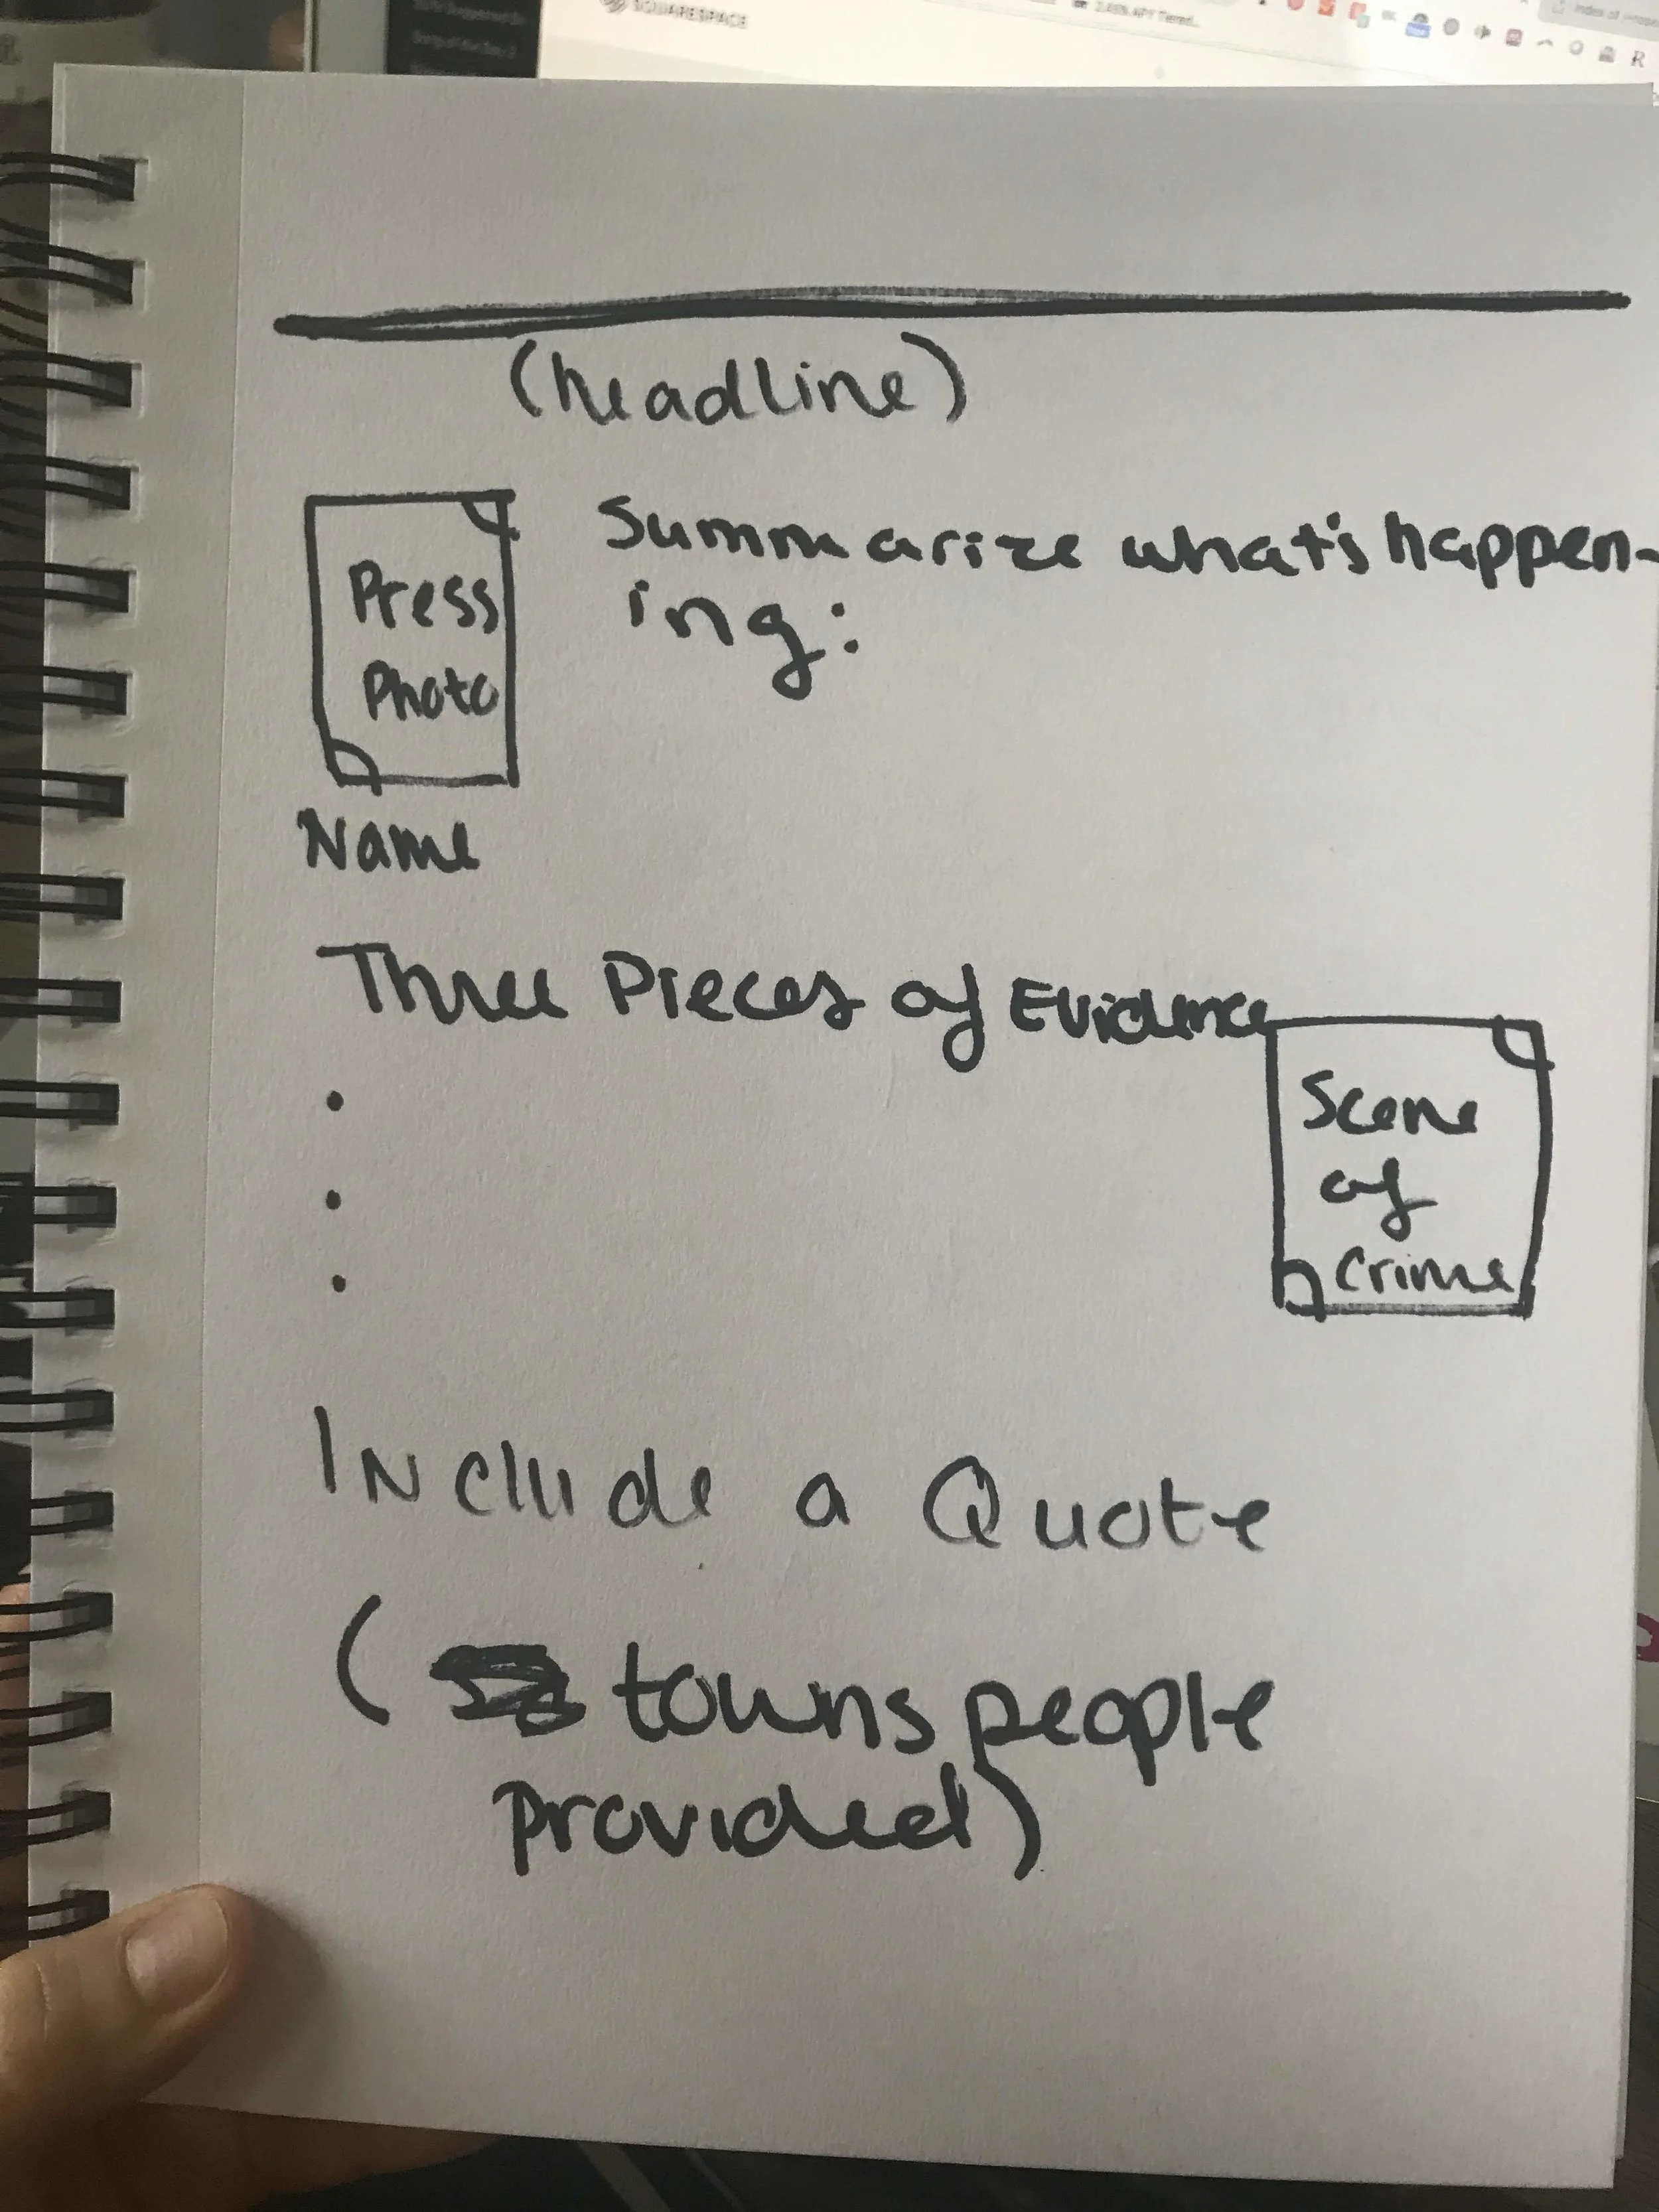 SQUARESPACE
(headline)
Press
Photo
Summarize what's happen-
ing:
Name
Three Pieces of Evidence
•
•
•
Scene
of
Crime
Include a Quote
( towns people
provided)